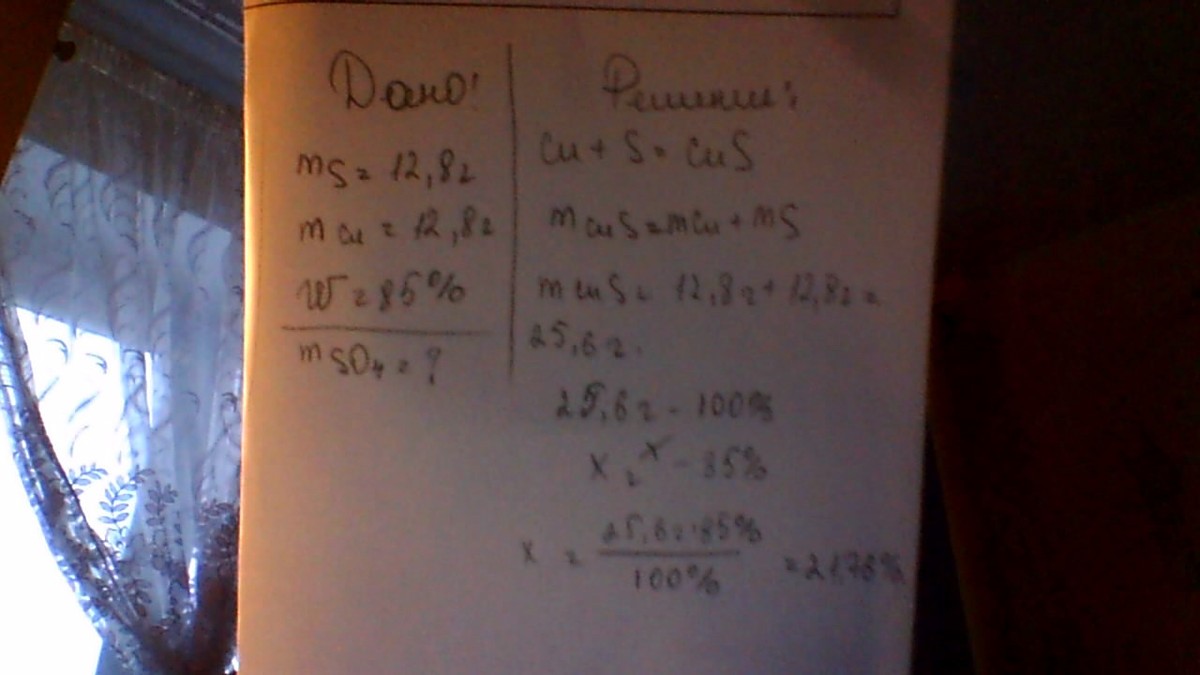 Дано:
mS = 12,8г
mcu = 12,8г
W = 85%
mSO4 = ?
Решение:
Cu + S = CuS
mcuS = mcu + mS
mcuS = 12,8г + 12,8г =
25,6г.
25,6г - 100%
x г x - 85%
x = 25,6г·85% / 100% = 21,76%